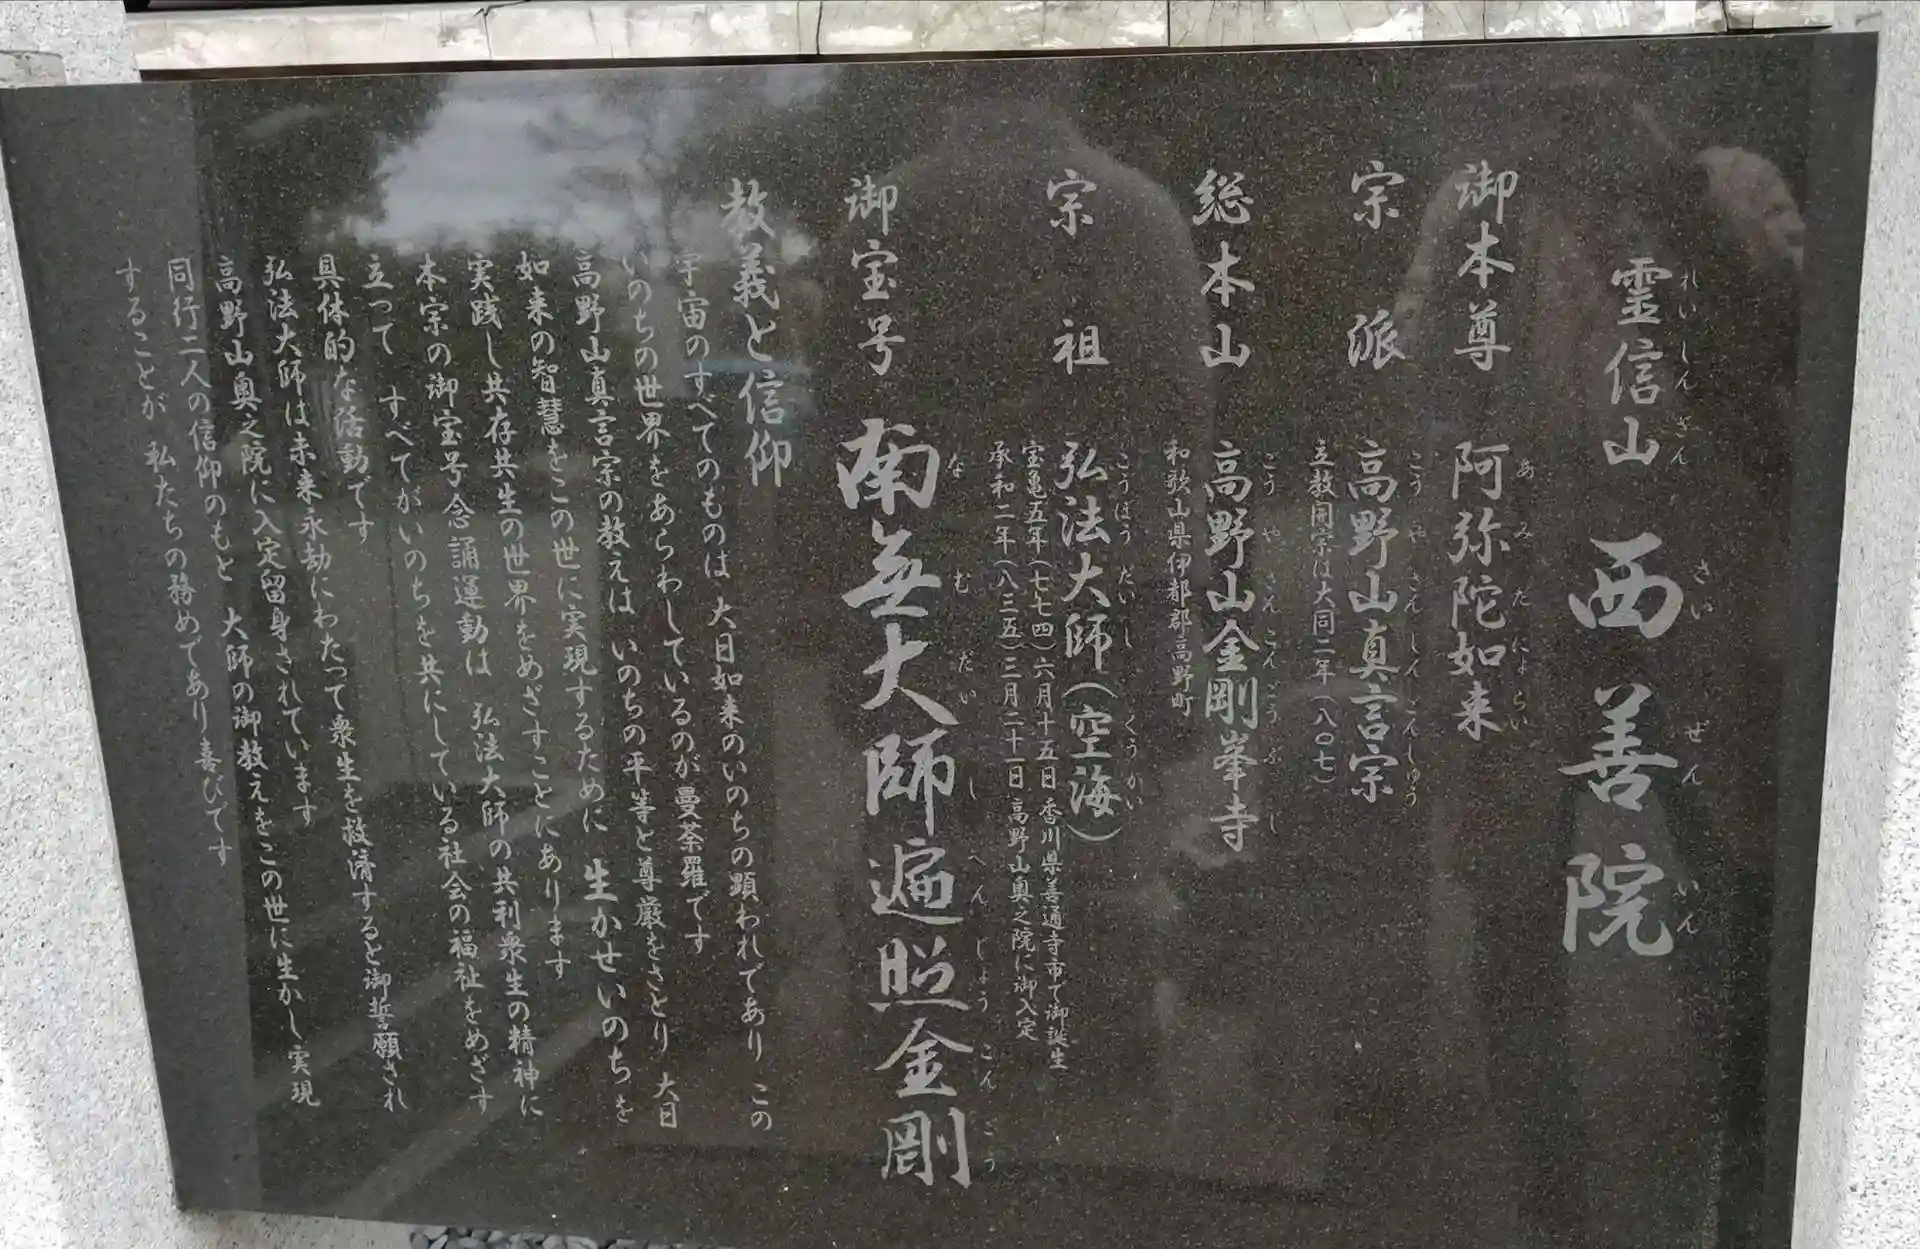 霊信山 西善院
れいしんざん さいぜんいん
御本尊 阿弥陀如来
あみたによらい
宗派 高野山真言宗
こうやさんしんごんしゅう
立教開宗は大同二年(八〇七)
総本山 高野山金剛峯寺
こうやさんこんごうぶじ
和歌山県伊都郡高野町
宗祖 弘法大師(空海)
こうぼうだいし くうかい
宝亀五年(七七四)六月十五日 香川県善通寺市で御誕生
承和二年(八三五)三月二十一日 高野山奥之院に御入定
御宝号 南無大師遍照金剛
なむだいしへんじょうこんごう
教義と信仰
宇宙のすべてのものは 大日如来のいのちの顕われであり この
いのちの世界をあらわしているのが曼荼羅です
高野山真言宗の教えは いのちの平等と尊厳をさとり 大日
如来の智慧をこの世に実現するために 生かせいのちを
実践し共存共生の世界をめざすことにあります
本宗の御宝号念誦運動は 弘法大師の共利衆生の精神に
立って すべてがいのちを共にしている社会の福祉をめざす
具体的な活動です
弘法大師は未来永劫にわたって衆生を救済すると御誓願され
高野山奥之院に入定留身されています
同行二人の信仰のもと 大師の御教えをこの世に生かし実現
することが 私たちの務めであり喜びです